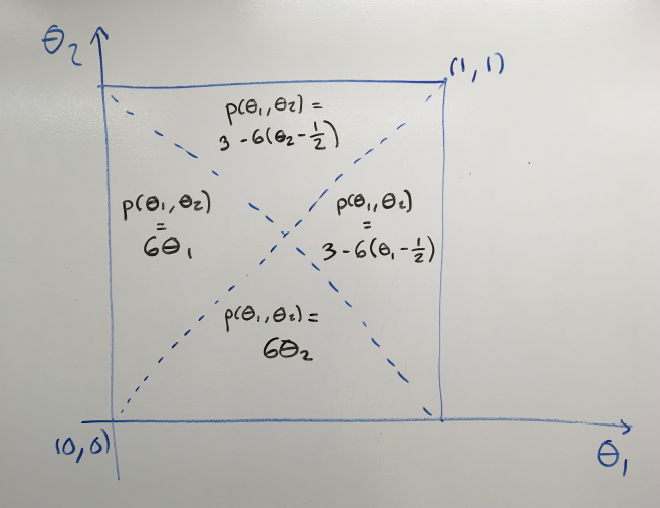 θ₂
(1, 1)
p(θ₁,θ₂) =
3 - 6(θ₂ - 1/2)
p(θ₁,θ₂)
=
6θ₁
p(θ₁,θ₂)
=
3 - 6(θ₁ - 1/2)
p(θ₁,θ₂) =
6θ₂
(0,0)
θ₁